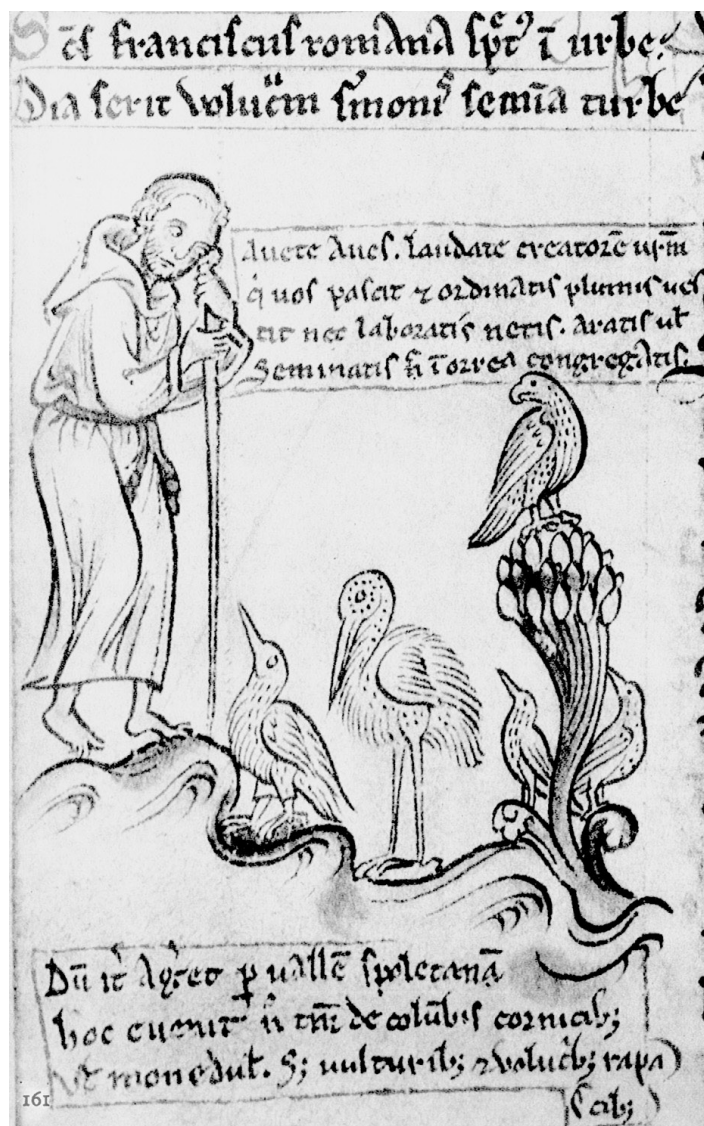 Scs franciscus romana sp̄rᵉtᵒ ī urbe.
Dia serit voluc̄m s̄monis semīa turbe
Avete Aves. laudate creatorē vr̄m
q̇ uos pascit ⁊ ordinatis plumis ues
tit nec laboratis netis. Aratis ul̄
Seminatis n̄ ī orrea congregatis.
Dū it̕ Ag̕et ꝑ vallē spoletanā
hoc euenit n̄ tm̄ de colūbis cornicib;
monedul̄. S; uulturib; ⁊ voluc̕b; rapa
cib;
161